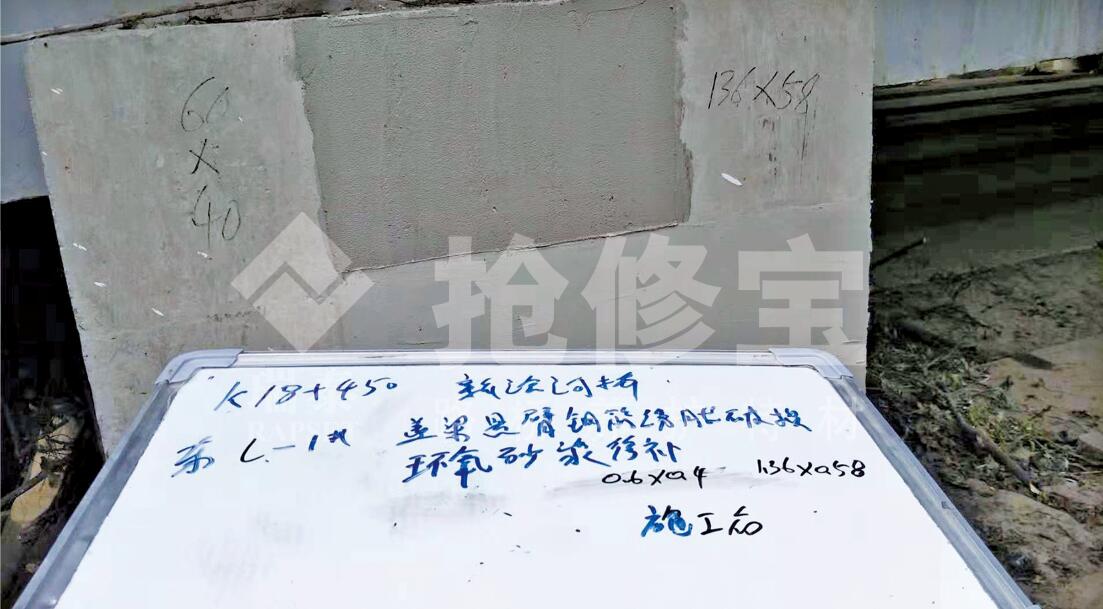 60
×
40
136×58
抢修宝
K18+450
河桥
第L-1#
盖梁悬臂钢筋锈胀破损
环氧砂浆修补
0.6×0.4 1.36×0.58
施工后